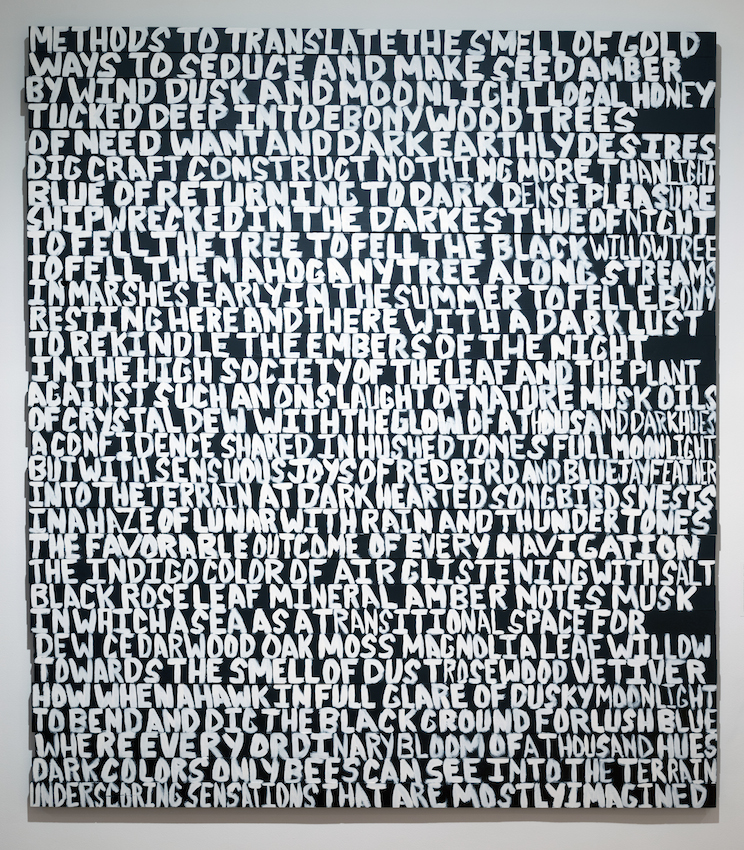 METHODS TO TRANSLATE THE SMELL OF GOLD
WAYS TO SEDUCE AND MAKE SEED AMBER
BY WIND DUSK AND MOONLIGHT LOCAL HONEY
TUCKED DEEP INTO EBONY WOOD TREES
OF NEED WANT AND DARK EARTHLY DESIRES
DIG CRAFT CONSTRUCT NOTHING MORE THAN LIGHT
BLUE OF RETURNING TO DARK DENSE PLEASURE
SHIPWRECKED IN THE DARKEST HUE OF NIGH
TO FELL THE TREE TO FELL THE BLACK WILLOW TREE
TO FELL THE MAHOGANY TREE ALONG STREAMS
IN MARSHES EARLY IN THE SUMMER TO FELL EBONY
RESTING HERE AND THERE WITH A DARK LUST
TO REKINDLE THE EMBERS OF THE NIGHT
IN THE HIGH SOCIETY OF THE LEAF AND THE PLANT
AGAINST SUCH AN ONSLAUGHT OF NATURE MUSK OILS
OF CRYSTAL DEW WITH THE GLOW OF A THOUSAND DARK HUES
A CONFIDENCE SHARED IN HUSHED TONES FULL MOONLIGHT
BUT WITH SENSUOUS JOYS OF RED BIRD AND BLUE JAY FEATHER
INTO THE TERRAIN AT DARK HEARTED SONGBIRDS NESTS
IN A HAZE OF LUNAR WITH RAIN AND THUNDER TONES
THE FAVORABLE OUTCOME OF EVERY NAVIGATION
THE INDIGO COLOR OF AIR GLISTENING WITH SALT
BLACK ROSE LEAF MINERAL AMBER NOTES MUSK
IN WHICH A SEA AS A TRANSITIONAL SPACE FOR
DEW CEDARWOOD OAK MOSS MAGNOLIA LEAF WILLOW
TOWARDS THE SMELL OF DUST ROSEWOOD VETIVER
HOW WHEN A HAWK IN FULL GLARE OF DUSKY MOONLIGHT
TO BEND AND DIG THE BLACK GROUND FOR LUSH BLUE
WHERE EVERY ORDINARY BLOOM OF A THOUSAND HUES
DARK COLORS ONLY BEES CAN SEE INTO THE TERRAIN
UNDERSCORING SENSATIONS THAT ARE MOSTLY IMAGINED